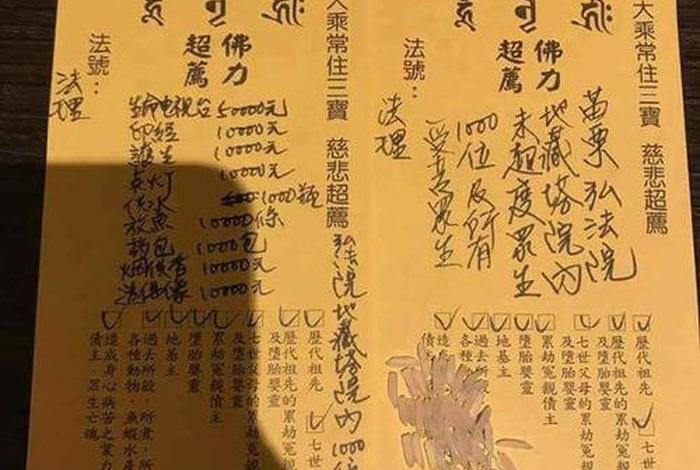 大乘常住三寶 慈悲超薦
苗栗弘法院
地藏塔院內
未超度眾生
1000位及所有
受苦眾生
佛力
超薦
法號：
法理
歷代祖先
歷代祖先的累劫冤親
及墮胎嬰靈
七世父母的累劫冤親
及墮胎嬰靈
累劫冤親債主
及墮胎嬰靈
地基主
過去所
各種動
七世
大乘常住三寶 慈悲超薦
弘法院地藏塔院內1000位
佛力
超薦
法號：
法理
生命电視台 50000元
印經 10000元
護生 10000元
点灯 10000元
供水 1000瓶
放魚 10000條
药包 10000包
10000元
造佛像 10000元
歷代祖先
歷代祖先的累劫冤親
及墮胎嬰靈
七世父母的累劫冤親
及墮胎嬰靈
累劫冤親債主
及墮胎嬰靈
地基主
過去所殺、所煮、所
各種動物、魚蝦水產
造成身心病苦之業力
債主、眾生亡魂
七世